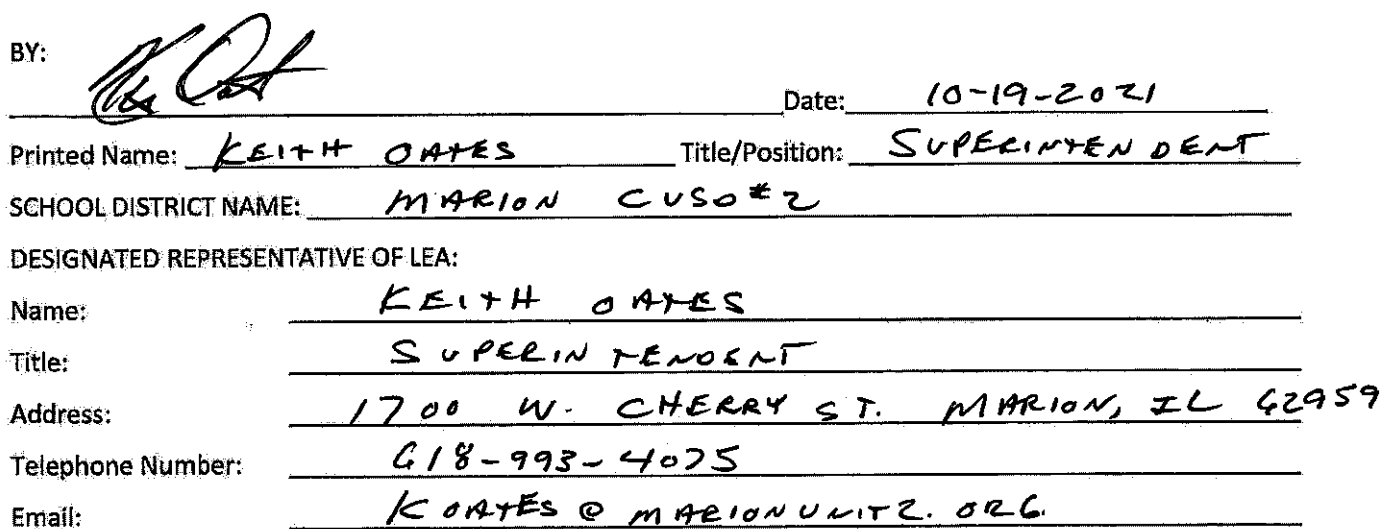 BY:
Date: 10-19-2021
Printed Name: KEITH OATES Title/Position: SUPERINTENDENT
SCHOOL DISTRICT NAME: MARION CUSD #2
DESIGNATED REPRESENTATIVE OF LEA:
Name: KEITH OATES
Title: SUPERINTENDENT
Address: 1700 W. CHERRY ST. MARION, IL 62959
Telephone Number: 618-993-4075
Email: KOATES@MARIONUNIT2.ORG